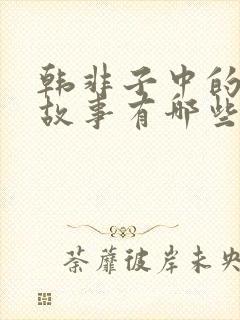 韩非子中的
故事有哪些
荼蘼彼岸未央